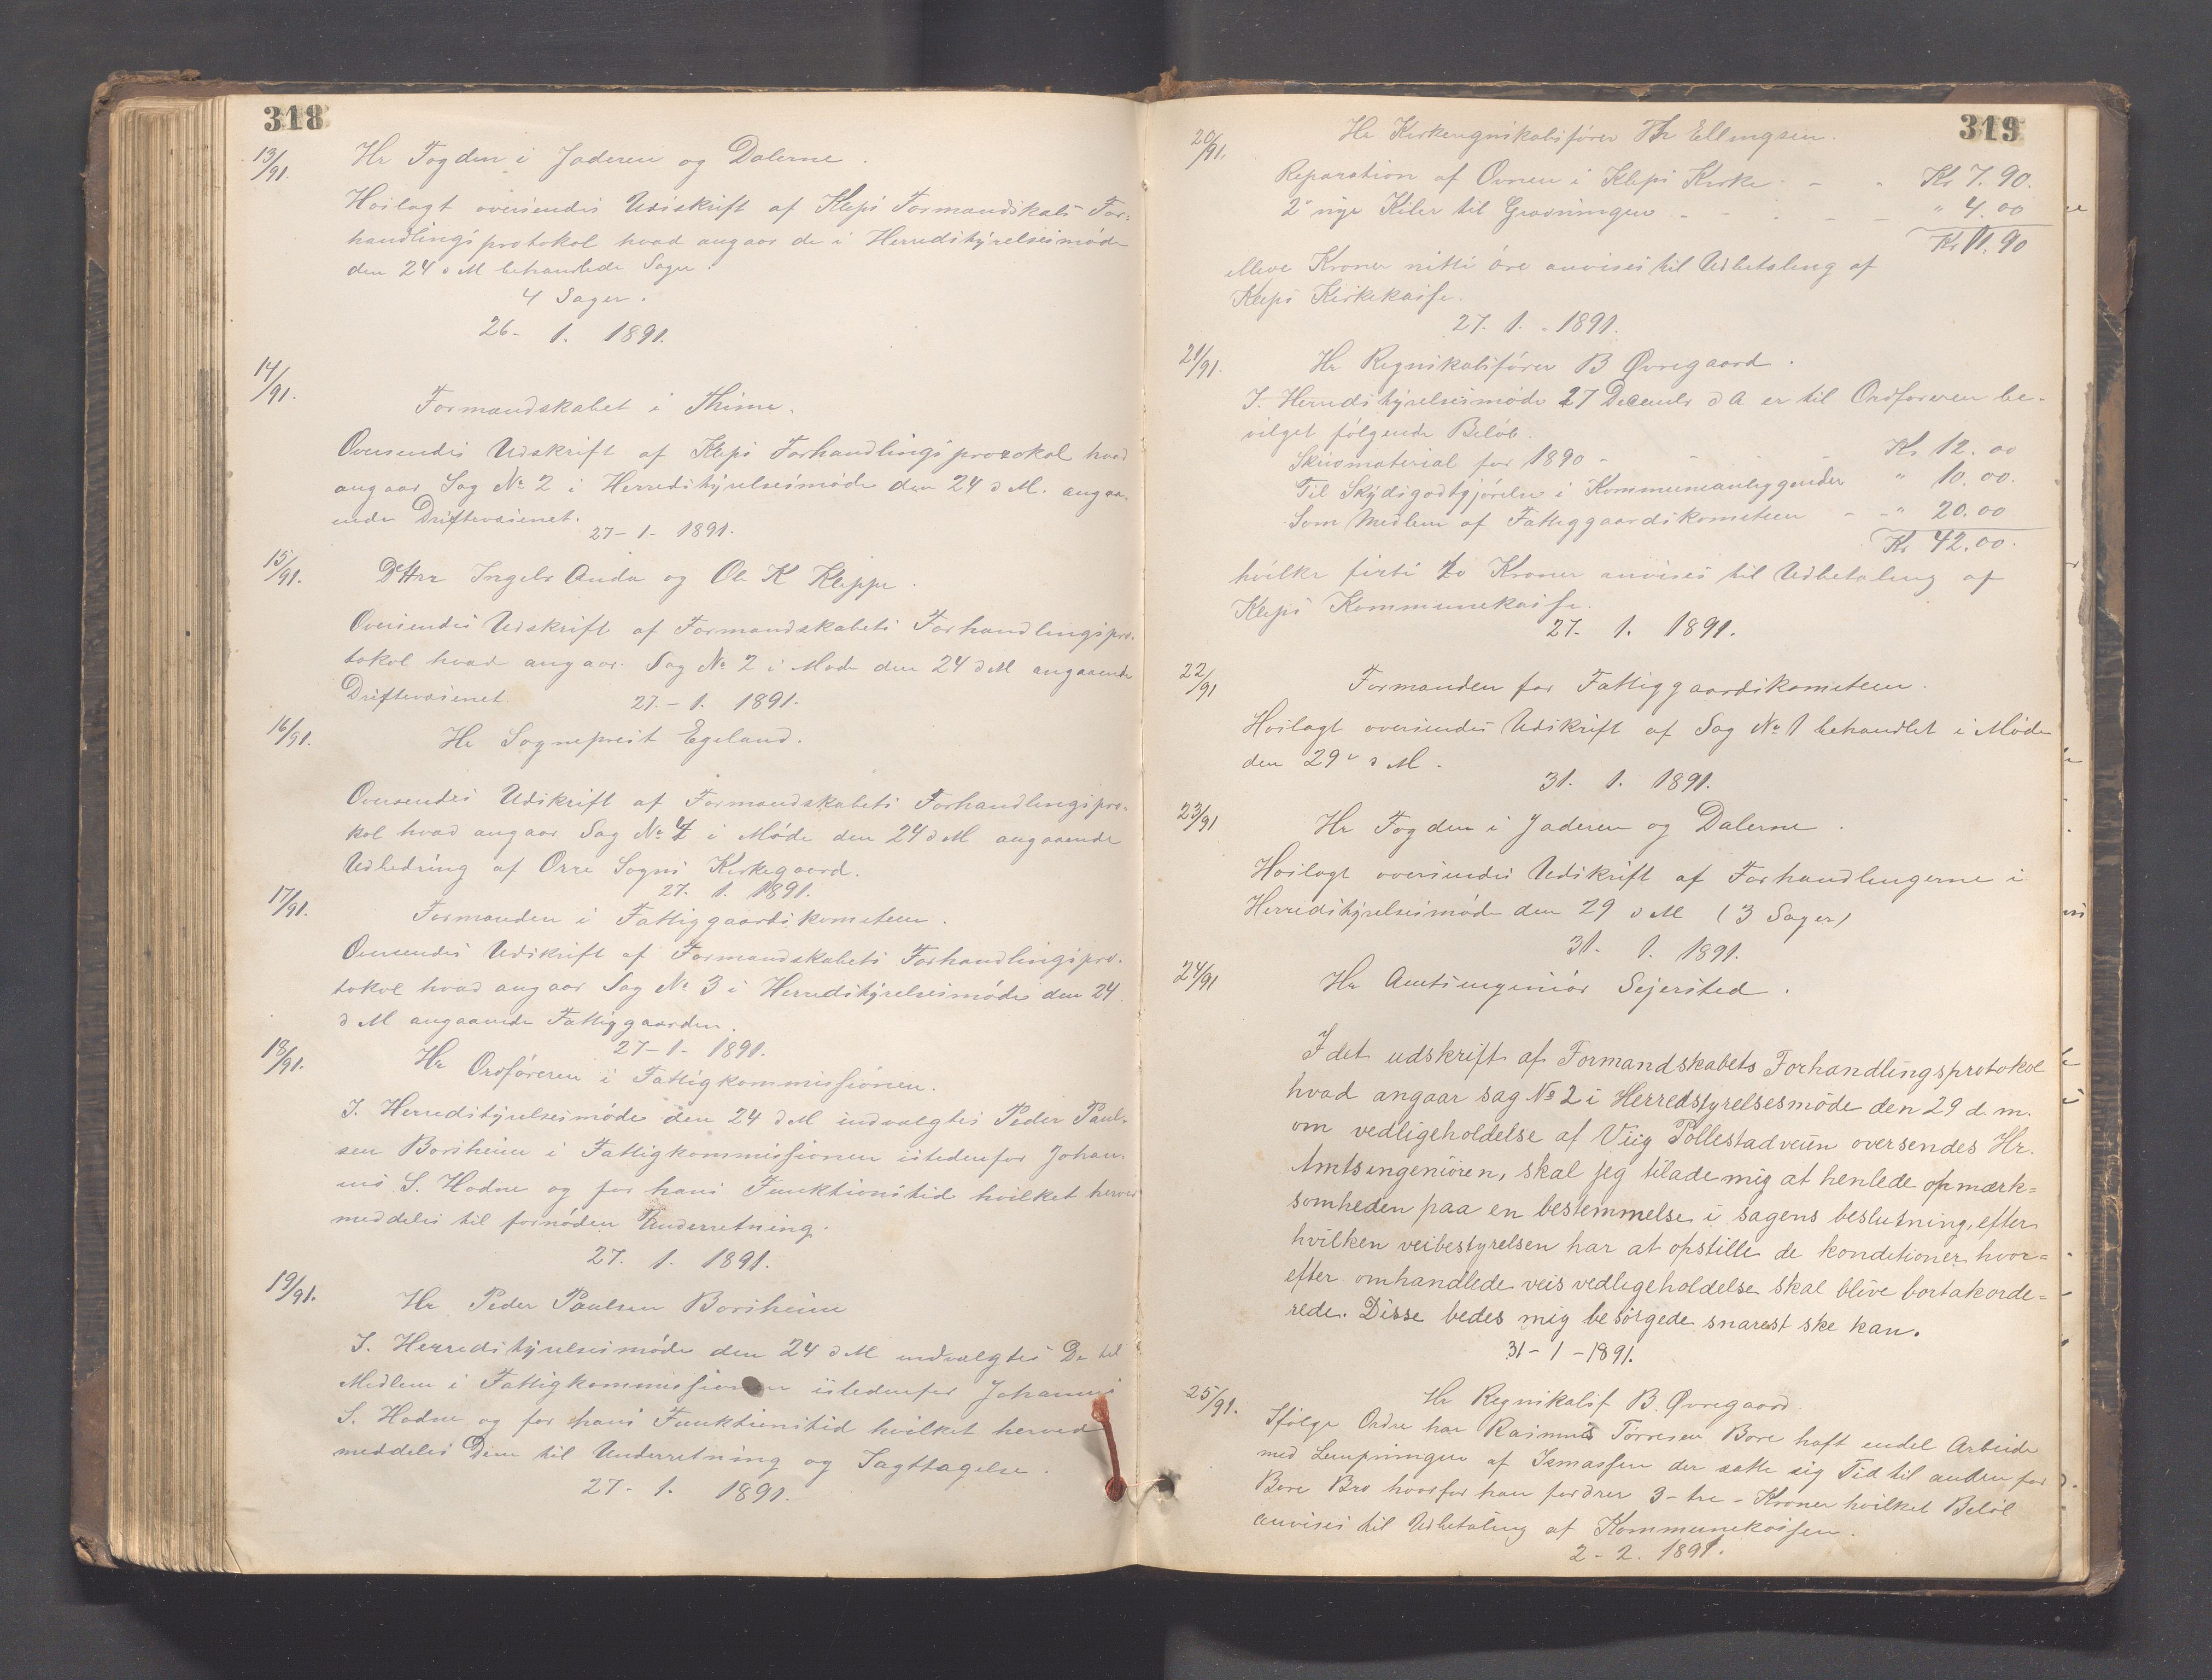 318
13/91.
Hr Fogden i Jaderen og Dalerne.
Hoilagt oversendes Udskrift af Kleps Formandskabs For-
handlingsprotokol hvad angaar de i Herredstyrelsesmøde
den 24 d M behandlede Sager.
4 Sager.
26- 1. 1891.
14/91.
Formandskabet i Thime.
Oversendes Udskrift af Kleps Forhandlingsprotokol hvad
angaar Sag No 2 i Herredstyrelsesmøde den 24 d M. angaa-
ende Driftevæsenet.
27-1- 1891.
15/91.
DHrr Ingebr Anda og Ole K Kleppe.
Oversendes Udskrift af Formandskabets Forhandlingspro-
tokol hvad angaar Sag No 2 i Møde den 24 d M angaaende
Driftevæsenet
27.-1. 1891.
16/91.
Hr Sogneprest Egeland.
Oversendes Udskrift af Formandskabets Forhandlingspro-
kol hvad angaar Sag No 4 i Møde den 24 d M angaaende
Udbedring af Orre Sogns Kirkegaard.
27. 1. 1891.
17/91.
Formanden i Fattiggaardskomiteen.
Oversendes Udskrift af Formandskabets Forhandlingspro-
tokol hvad angaar Sag No 3 i Herredstyrelsesmøde den 24
d M angaaende Fattiggaarden.
27-1- 1891.
18/91.
Hr Ordføreren i Fattigkommissionen.
I. Herredstyrelsesmøde den 24 d M indvalgtes Peder Paul-
sen Borsheim i Fattigkommissionen istedenfor Johan-
nes S. Hodne og for hans Funktionstid hvilket herved
meddeles til fornøden Underretning.
27. 1. 1891.
19/91.
Hr Peder Paulsen Borsheim
I. Herredstyrelsesmøde den 24 d M indvalgtes De til
Medlem i Fattigkommissionen istedenfor Johannes
S. Hodne og for hans Funktionstid hvilket herved
meddeles Dem til Underretning og Iagttagelse.
27- 1. 1891.
319
20/91.
Hr Kirkeregnskabsfører Th Ellingsen.
Reparation af Ovnen i Kleps Kirke - - Kr 7.90.
2 nye Kiler til Gravningen - - - - " 4.00
Kr 11.90
elleve Kroner nitti øre anvises til Udbetaling af
Kleps Kirkekasse.
27. 1. 1891.
21/91.
Hr Regnskabsfører B Øvregaard.
I. Herredstyrelsesmøde 27 Decembr d A er til Ordføreren be-
vilget følgende Beløb.
Skrivmaterial for 1890 - - - - Kr 12.00
Til Skydsgodtgjørelse i Kommuneanliggender " 10.00.
Som Medlem af Fattiggaardskomiteen - - " 20.00
Kr 42.00.
hvilke firti to Kroner anvises til Udbetaling af
Kleps Kommunekasse.
27- 1. 1891.
22/91
Formanden for Fattiggaardskomiteen.
Hoilagt oversendes Udskrift af Sag No 1 behandlet i Møde
den 29 d M.
31. 1. 1891.
23/91
Hr Fogden i Jaderen og Dalerne.
Hoilagt oversendes Udskrift af Forhandlingerne i
Herredstyrelsesmøde den 29 d M (3 Sager)
31- 1. 1891.
24/91
Hr Amtsingeniør Sejersted.
Idet udskrift af Formandskabets Forhandlingsprotokol
hvad angaar sag No 2 i Herredstyrelsesmøde den 29 d. m.
om vedligeholdelse af Viig Pollestadveien oversendes Hr.
Amtsingeniøren, skal jeg tilade mig at henlede opmærk=
somheden paa en bestemmelse i sagens beslutning, efter
hvilken veibestyrelsen har at opstille de konditioner hvor=
efter omhandlede veis vedligeholdelse skal blive bortakorde=
rede. Disse bedes mig besørgede snarest ske kan.
31-1-1891.
25/91.
Hr Regnskabsf B. Øvregaard
Ifølge Ordre har Rasmus Torresen Bore haft endel Arbeide
med Lempningen af Ismassen der satte sig Tid til anden for
Bore Bro hvorfor han fordrer 3-tre-Kroner hvilket Beløb
anvises til Udbetaling af Kommunekassen.
2-2. 1891.